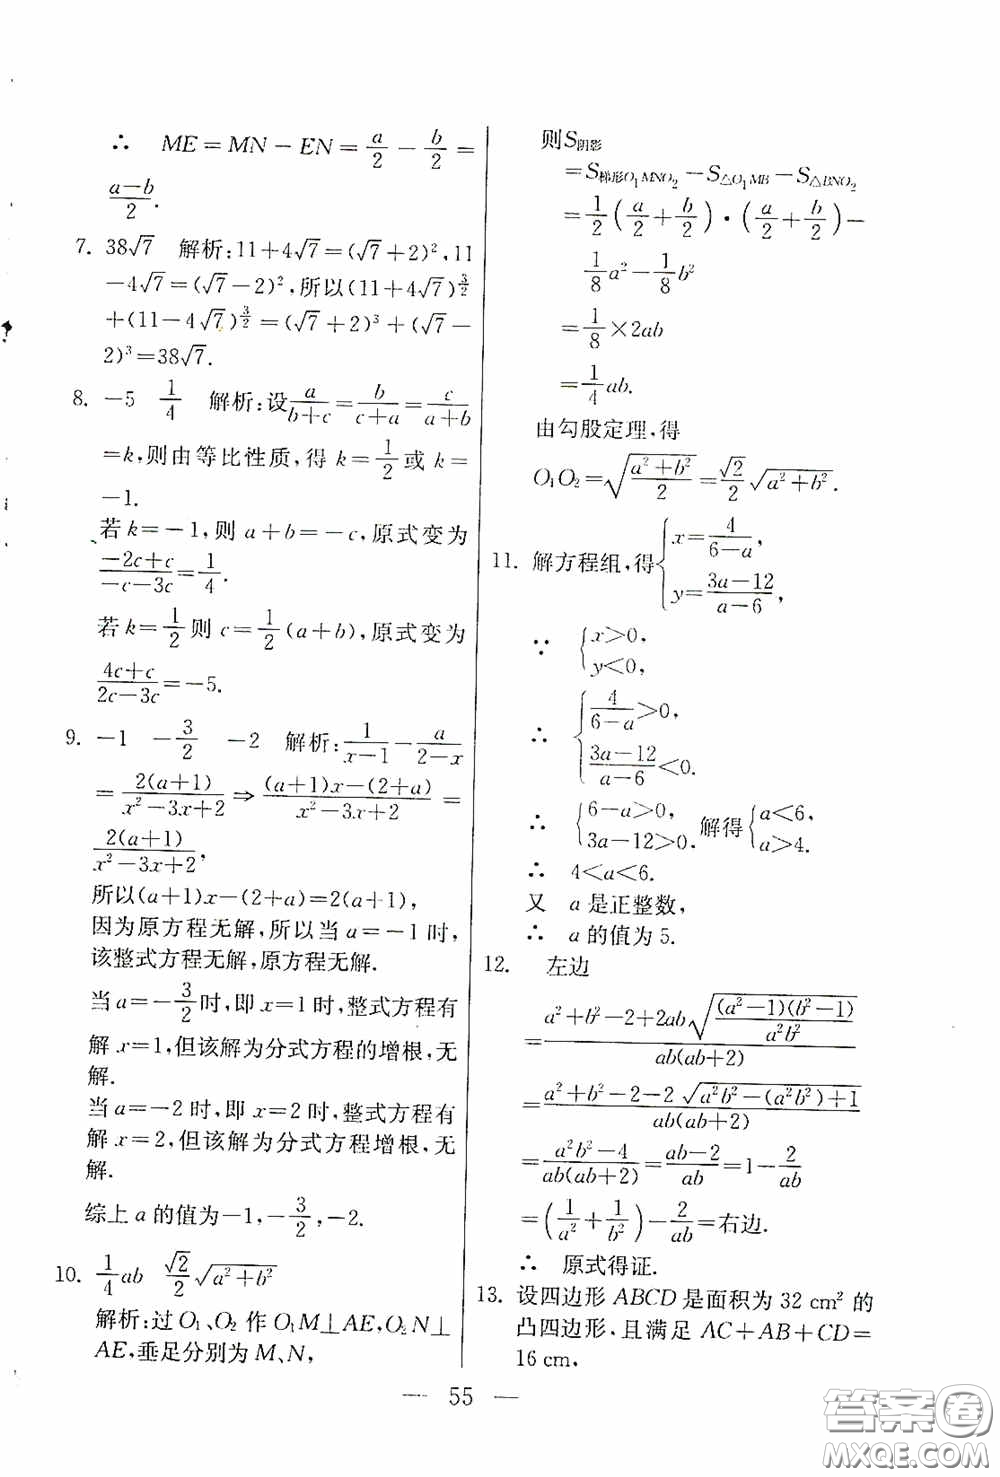 ∴ ME=MN-EN=a/2-b/2=
(a-b)/2.
7. 38√7 解析:11+4√7=(√7+2)²,11
-4√7=(√7-2)²,所以(11+4√7)^(3/2)
+(11-4√7)^(3/2)=(√7+2)³+(√7-
2)³=38√7.
8. -5 1/4 解析:设a/(b+c)=b/(c+a)=c/(a+b)
=k,则由等比性质,得 k=1/2或 k=
-1.
若 k=-1,则 a+b=-c,原式变为
(-2c+c)/(-c-3c)=1/4.
若 k=1/2则 c=1/2(a+b),原式变为
(4c+c)/(2c-3c)=-5.
9. -1 -3/2 -2 解析:1/(x-1)-a/(2-x)
=2(a+1)/(x²-3x+2)⇒((a+1)x-(2+a))/(x²-3x+2)=
2(a+1)/(x²-3x+2),
所以(a+1)x-(2+a)=2(a+1),
因为原方程无解,所以当 a=-1 时,
该整式方程无解,原方程无解.
当 a=-3/2时,即 x=1 时,整式方程有
解 x=1,但该解为分式方程的增根,无
解.
当 a=-2 时,即 x=2 时,整式方程有
解 x=2,但该解为分式方程增根,无
解.
综上 a 的值为-1,-3/2,-2.
10. 1/4ab √2/2√(a²+b²)
解析:过 O₁、O₂ 作 O₁M⊥AE,O₂N⊥
AE,垂足分别为 M、N,
则S阴影
=S梯形O₁MNO₂-S△O₁MB-S△BNO₂
=1/2(a/2+b/2)·(a/2+b/2)-
1/8a²-1/8b²
=1/8×2ab
=1/4ab.
由勾股定理,得
O₁O₂=√((a²+b²)/2)=√2/2√(a²+b²).
11. 解方程组,得{x=4/(6-a),
y=(3a-12)/(a-6),
∵ {x>0,
y<0,
∴ {4/(6-a)>0,
(3a-12)/(a-6)<0.
∴ {6-a>0, 3a-12>0. 解得{a<6, a>4.
∴ 4<a<6.
又 a 是正整数,
∴ a 的值为 5.
12. 左边
=(a²+b²-2+2ab√((a²-1)(b²-1)/(a²b²)))/(ab(ab+2))
=(a²+b²-2-2√(a²b²-(a²b²)+1))/(ab(ab+2))
=(a²b²-4)/(ab(ab+2))=(ab-2)/ab=1-2/ab
=(1/a²+1/b²)-2/ab=右边.
∴ 原式得证.
13. 设四边形 ABCD 是面积为 32 cm² 的
凸四边形,且满足 AC+AB+CD=
16 cm,
— 55 —
答案圈
MXQE.COM